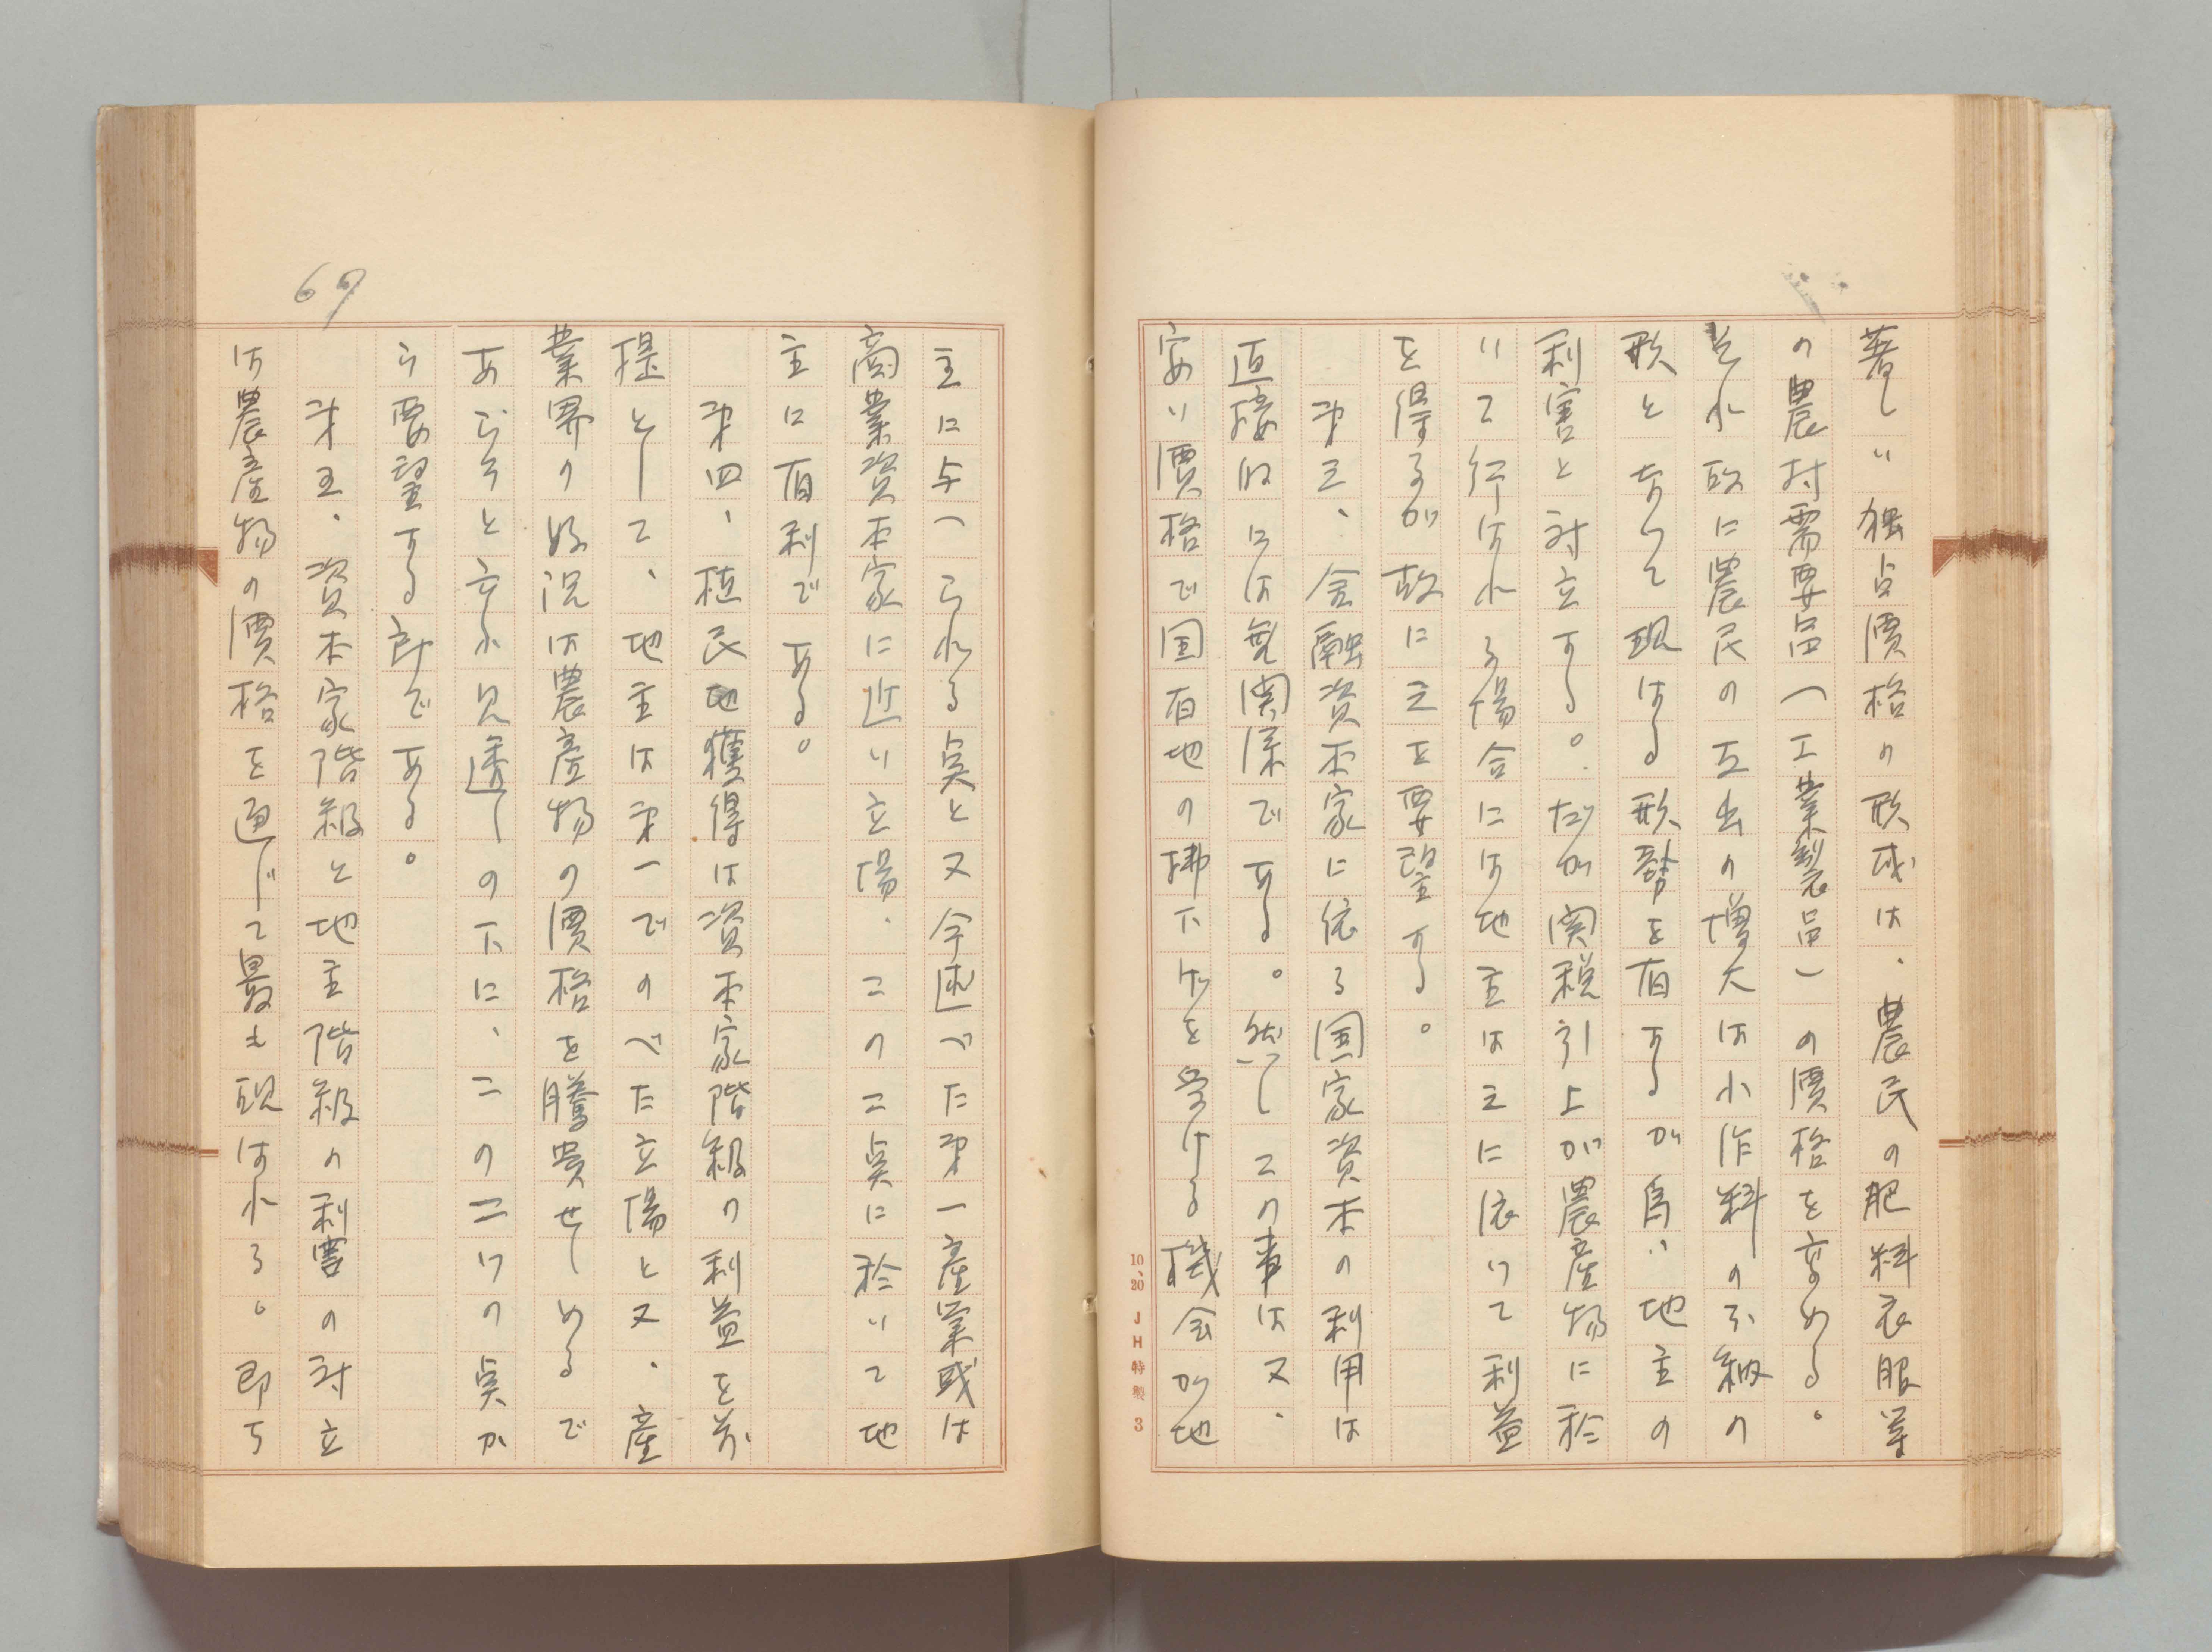 著しい独占價格の形成は、農民の肥料衣服等
の農村需要品(工業製品)の價格を高める。
それ故に農民の支出の増大は小作料の不納の
形となつて現はる形勢を有するが為、地主の
利害と対立する。だが関税引上が農産物に於
いて行はれる場合には地主は之に依つて利益
を得るが故に之を要望する。
第三、金融資本家に依る国家資本の利用は
直接的には無関係である。然しこの事は又、
安い價格で国有地の拂下げを受ける機会が地
主に与へられる点と又今述べた第一産業或は
商業資本家に近い立場、この二点に於いて地
主に有利である。
第四、植民地獲得は資本家階級の利益を前
提として、地主は第一でのべた立場と又、産
業界の好況は農産物の價格を騰貴せしめるで
あらうと云ふ見透しの下に、この二つの点か
ら要望する訳である。
第五、資本家階級と地主階級の利害の対立
は農産物の價格を通じて最も現はれる。即ち
69
10、20 JH特製 3